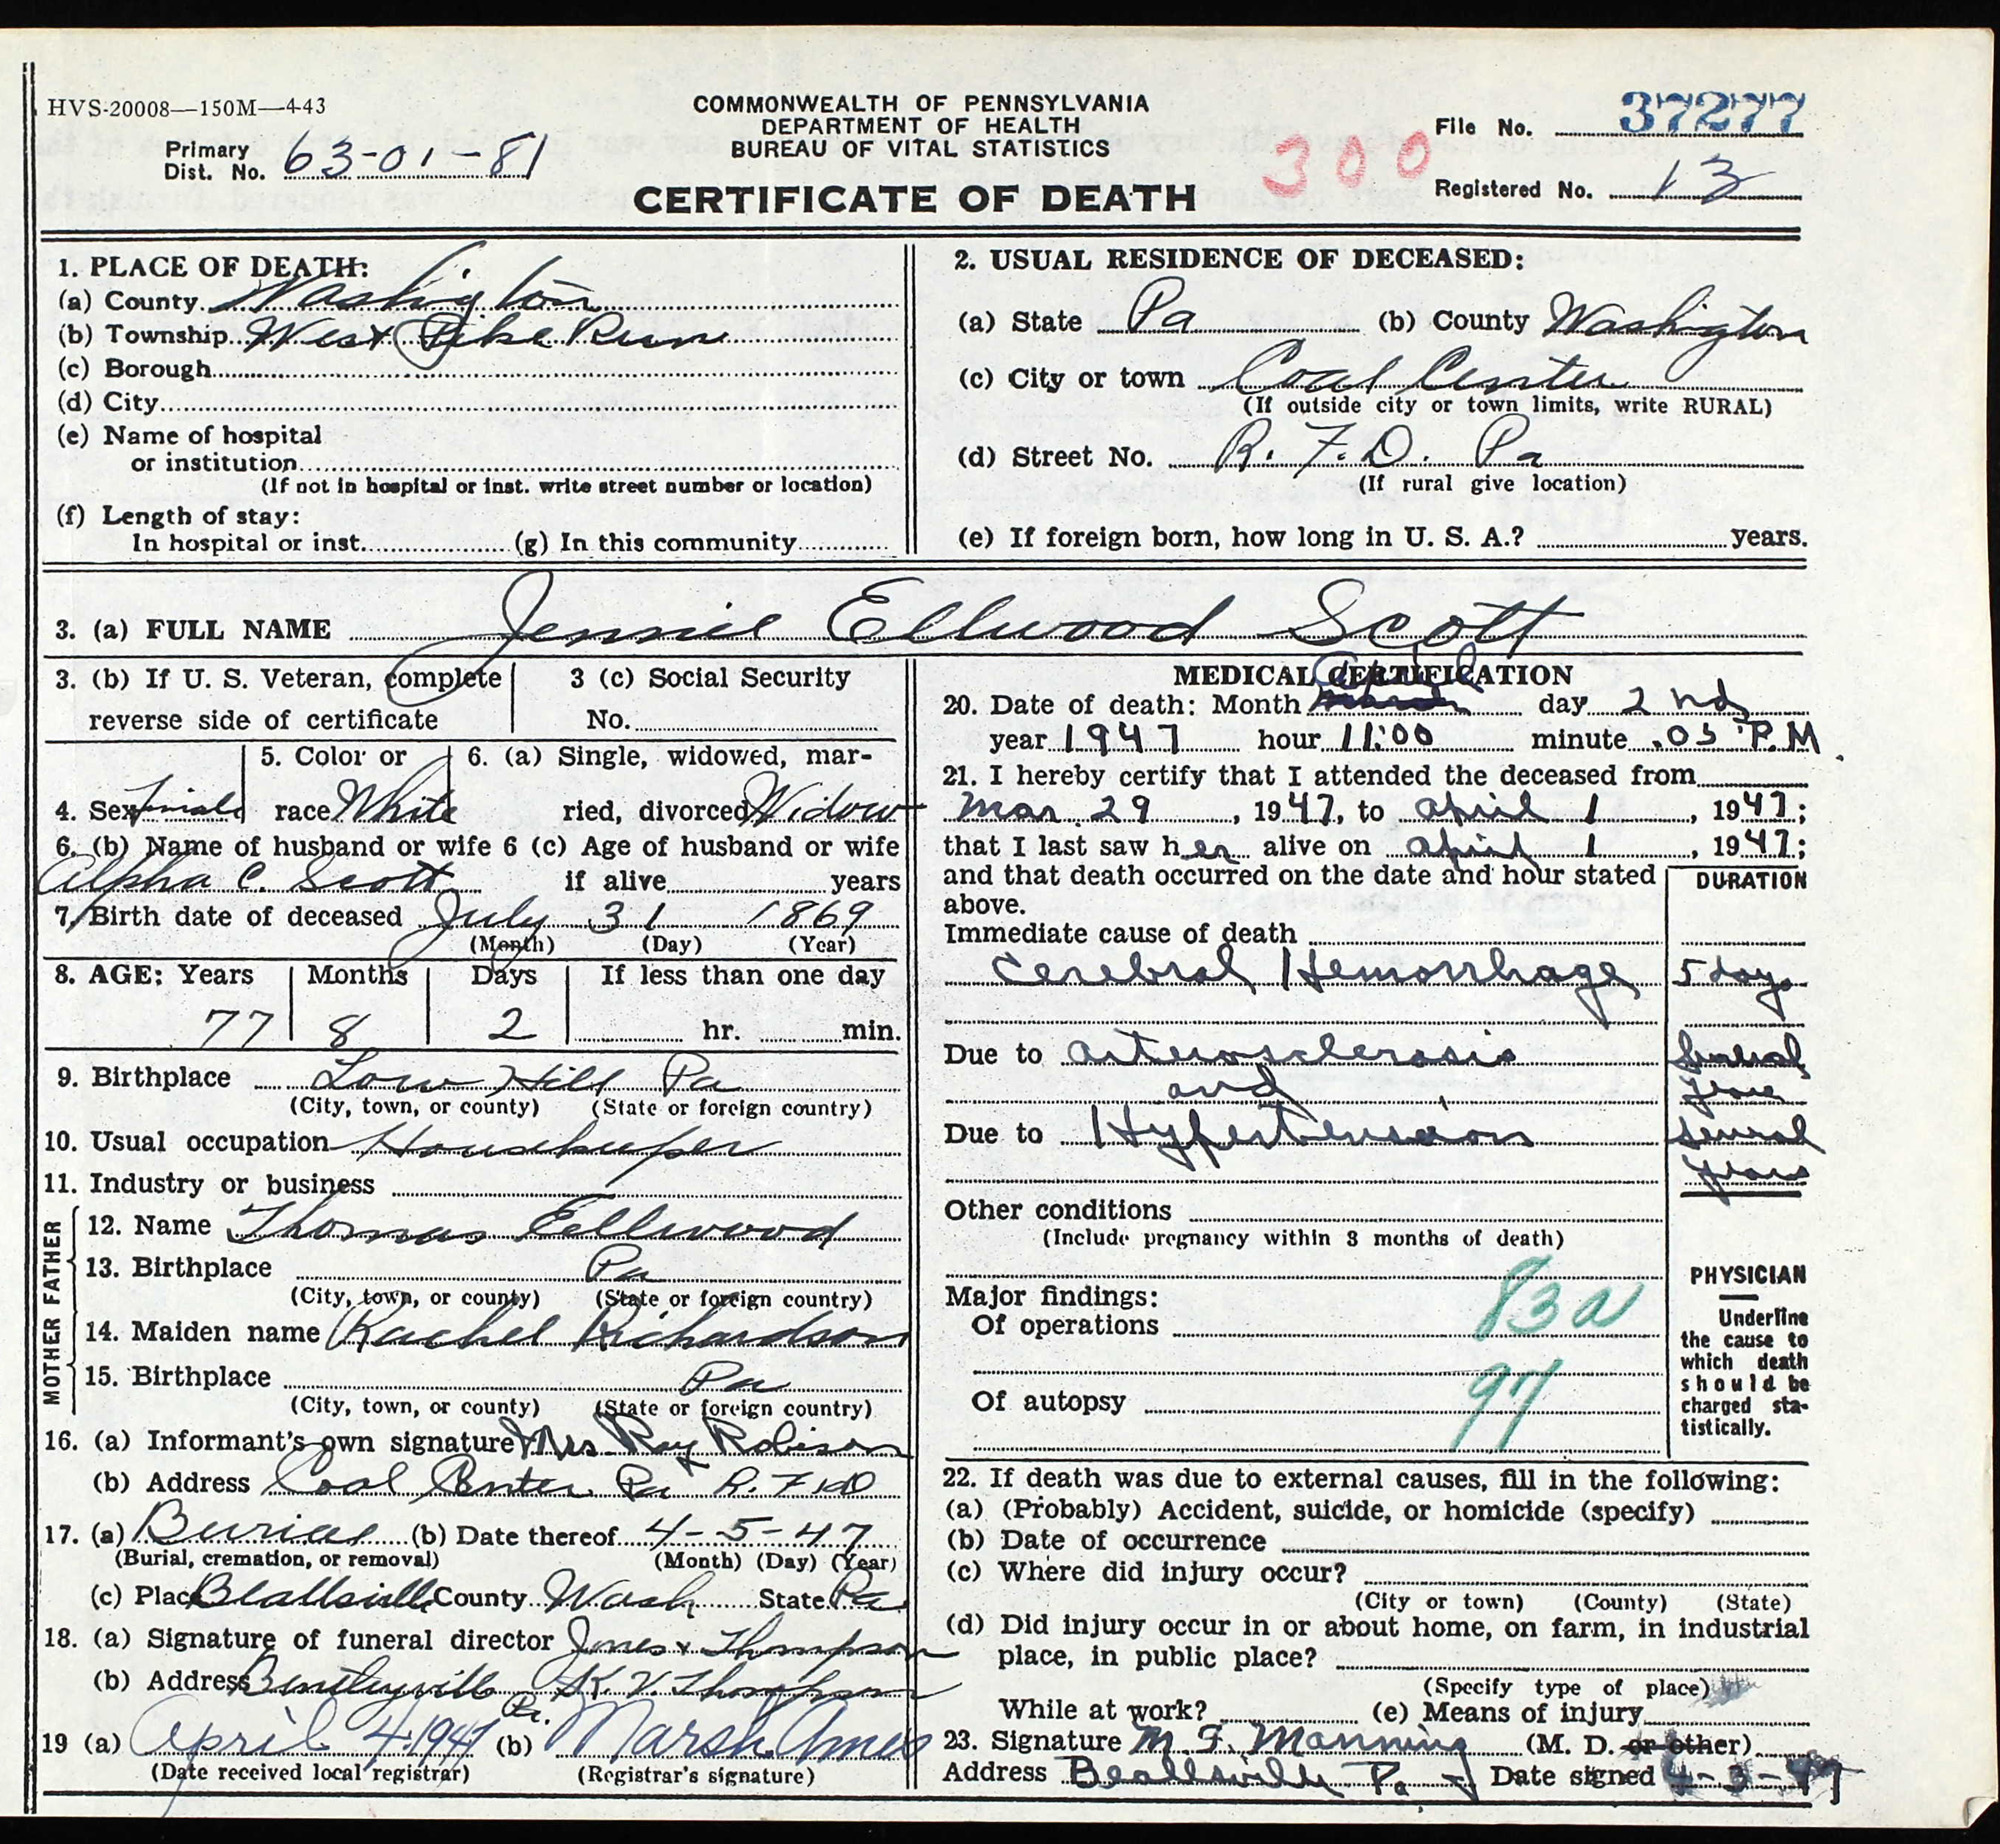 HVS-20008—150M—4-43
COMMONWEALTH OF PENNSYLVANIA
DEPARTMENT OF HEALTH
BUREAU OF VITAL STATISTICS
CERTIFICATE OF DEATH
Primary
Dist. No. 63-01-81
300
File No. 37277
Registered No. 13
1. PLACE OF DEATH:
(a) County Washington
(b) Township West Pike Run
(c) Borough
(d) City
(e) Name of hospital
or institution
(If not in hospital or inst. write street number or location)
(f) Length of stay:
In hospital or inst. (g) In this community
2. USUAL RESIDENCE OF DECEASED:
(a) State Pa (b) County Washington
(c) City or town Coal Center
(If outside city or town limits, write RURAL)
(d) Street No. R.F.D. Pa
(If rural give location)
(e) If foreign born, how long in U. S. A.? years.
3. (a) FULL NAME Jennie Ellwood Scott
3. (b) If U. S. Veteran, complete
reverse side of certificate
3 (c) Social Security
No.
4. Sex Female
5. Color or
race White
6. (a) Single, widowed, mar-
ried, divorced Widow
6. (b) Name of husband or wife 6 (c) Age of husband or wife
Alpha C. Scott if alive years
7. Birth date of deceased July 31 1869
(Month) (Day) (Year)
8. AGE: Years Months Days If less than one day
77 8 2 hr. min.
9. Birthplace Low Hill Pa
(City, town, or county) (State or foreign country)
10. Usual occupation Housekeeper
11. Industry or business
FATHER
12. Name Thomas Ellwood
13. Birthplace Pa
(City, town, or county) (State or foreign country)
MOTHER
14. Maiden name Rachel Richardson
15. Birthplace Pa
(City, town, or county) (State or foreign country)
16. (a) Informant's own signature Mrs Ray Robison
(b) Address Coal Center Pa R.F.D
17. (a) Burial (b) Date thereof 4-5-47
(Burial, cremation, or removal) (Month) (Day) (Year)
(c) Place Beallsville County Wash State Pa
18. (a) Signature of funeral director Jones & Thompson
(b) Address Bentleyville Pa. K. V. Thompson
19 (a) April 4, 1947 (b) Marsh Ames
(Date received local registrar) (Registrar's signature)
MEDICAL CERTIFICATION
20. Date of death: Month April day 2nd
year 1947 hour 11:00 minute .05 P.M.
21. I hereby certify that I attended the deceased from
Mar 29, 1947, to april 1, 1947;
that I last saw her alive on april 1, 1947;
and that death occurred on the date and hour stated
above.
DURATION
Immediate cause of death
Cerebral Hemorrhage 5 days
Due to arteriosclerosis Several
and years
Due to Hypertension several
years
Other conditions
(Include pregnancy within 3 months of death)
Major findings:
Of operations
83a
97
Of autopsy
PHYSICIAN
Underline
the cause to
which death
should be
charged sta-
tistically.
22. If death was due to external causes, fill in the following:
(a) (Probably) Accident, suicide, or homicide (specify)
(b) Date of occurrence
(c) Where did injury occur?
(City or town) (County) (State)
(d) Did injury occur in or about home, on farm, in industrial
place, in public place?
(Specify type of place)
While at work? (e) Means of injury
23. Signature M. F. Manning (M. D. or other)
Address Beallsville Pa Date signed 4-3-47